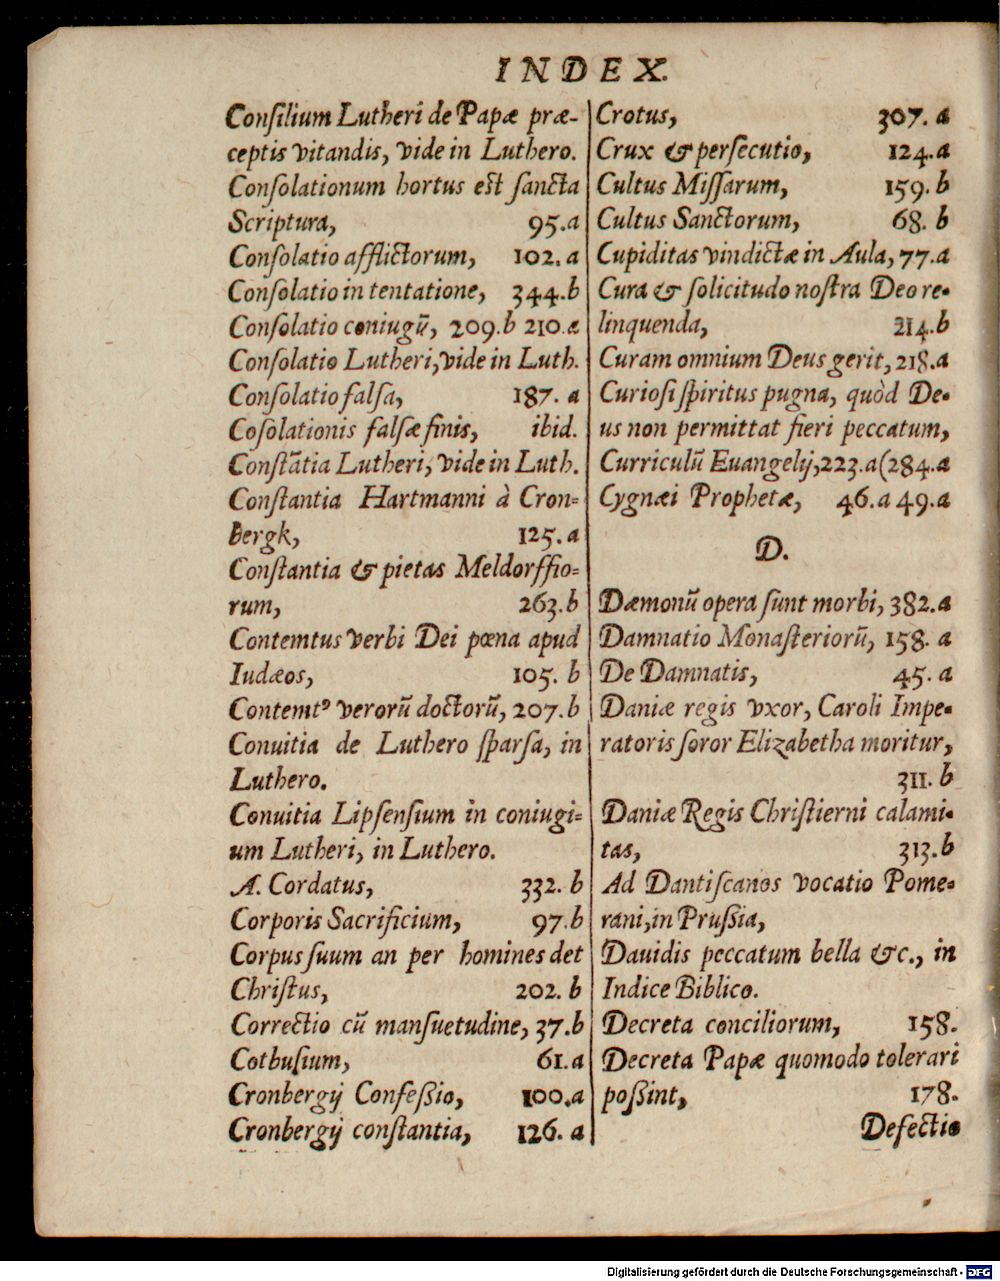 INDEX.
Conſilium Lutheri de Papæ præ-
ceptis vitandis, vide in Luthero.
Conſolationum hortus eſt ſancta
Scriptura, 95.a
Conſolatio afflictorum, 102.a
Conſolatio in tentatione, 344.b
Conſolatio coniugū, 209.b 210.a
Conſolatio Lutheri, vide in Luth.
Conſolatio falſa, 187. a
Coſolationis falſæ finis, ibid.
Conſtātia Lutheri, vide in Luth.
Conſtantia Hartmanni à Cron-
bergk, 125.a
Conſtantia & pietas Meldorffio-
rum, 263.b
Contemtus verbi Dei pœna apud
Iudæos, 105. b
Contemtꝰ verorū doctorū, 207.b
Conuitia de Luthero ſparſa, in
Luthero.
Conuitia Lipſenſium in coniugi-
um Lutheri, in Luthero.
A. Cordatus, 332. b
Corporis Sacrificium, 97.b
Corpus ſuum an per homines det
Chriſtus, 202. b
Correctio cū manſuetudine, 37.b
Cotbuſium, 61.a
Cronbergij Confeßio, 100.a
Cronbergij conſtantia, 126. a
Crotus, 307. a
Crux & perſecutio, 124.a
Cultus Miſſarum, 159. b
Cultus Sanctorum, 68. b
Cupiditas vindictæ in Aula, 77.a
Cura & ſolicitudo noſtra Deo re-
linquenda, 214.b
Curam omnium Deus gerit, 218.a
Curioſi ſpiritus pugna, quòd De-
us non permittat fieri peccatum,
Curriculū Euangelij, 223.a (284.a
Cygnæi Prophetæ, 46.a 49.a
D.
Dæmonū opera ſunt morbi, 382.a
Damnatio Monaſteriorū, 158. a
De Damnatis, 45. a
Daniæ regis vxor, Caroli Impe-
ratoris ſoror Elizabetha moritur,
311. b
Daniæ Regis Chriſtierni calami-
tas, 313.b
Ad Dantiſcanos vocatio Pome-
rani, in Pruſsia,
Dauidis peccatum bella &c., in
Indice Biblico.
Decreta conciliorum, 158.
Decreta Papæ quomodo tolerari
poßint, 178.
Defectio
Digitalisierung gefördert durch die Deutsche Forschungsgemeinschaft - DFG